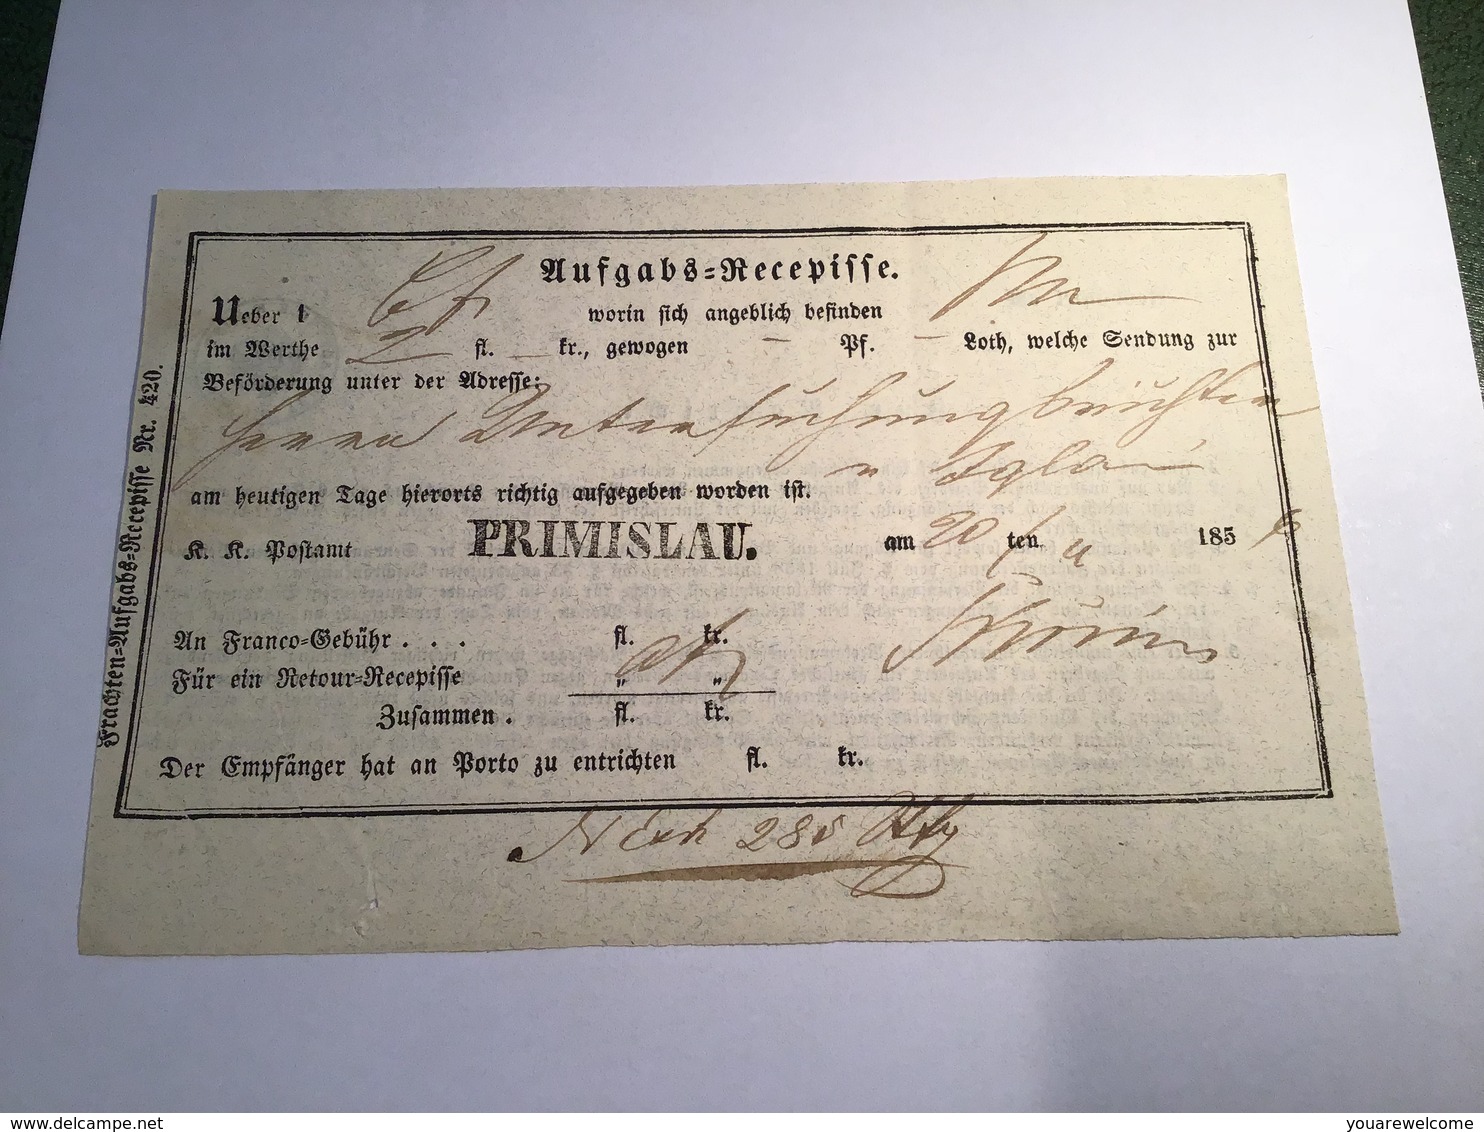 Aufgabs=Recepisse.
Ueber 1 worin sich angeblich befinden
im Werthe 2 fl. — kr., gewogen — Pf. — Loth, welche Sendung zur
Beförderung unter der Adresse:
Herrn Untersuchungs
Iglau
am heutigen Tage hierorts richtig aufgegeben worden ist.
K. K. Postamt PRIMISLAU. am 20 ten 185
An Franco=Gebühr . . . fl. kr.
Für ein Retour=Recepisse " "
Zusammen . fl. kr.
Der Empfänger hat an Porto zu entrichten fl. kr.
N Exh 285
Frachten=Aufgabs=Recepisse Nr. 420.
delcampe.net
youarewelcome